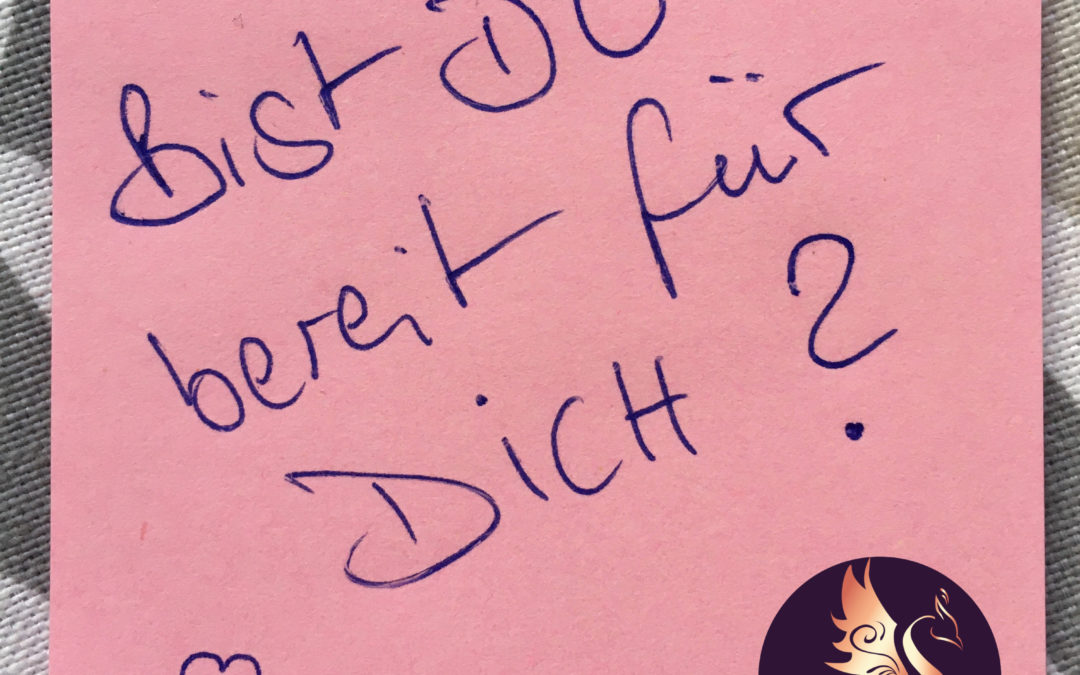 Bist DU
bereit für
DicH ?